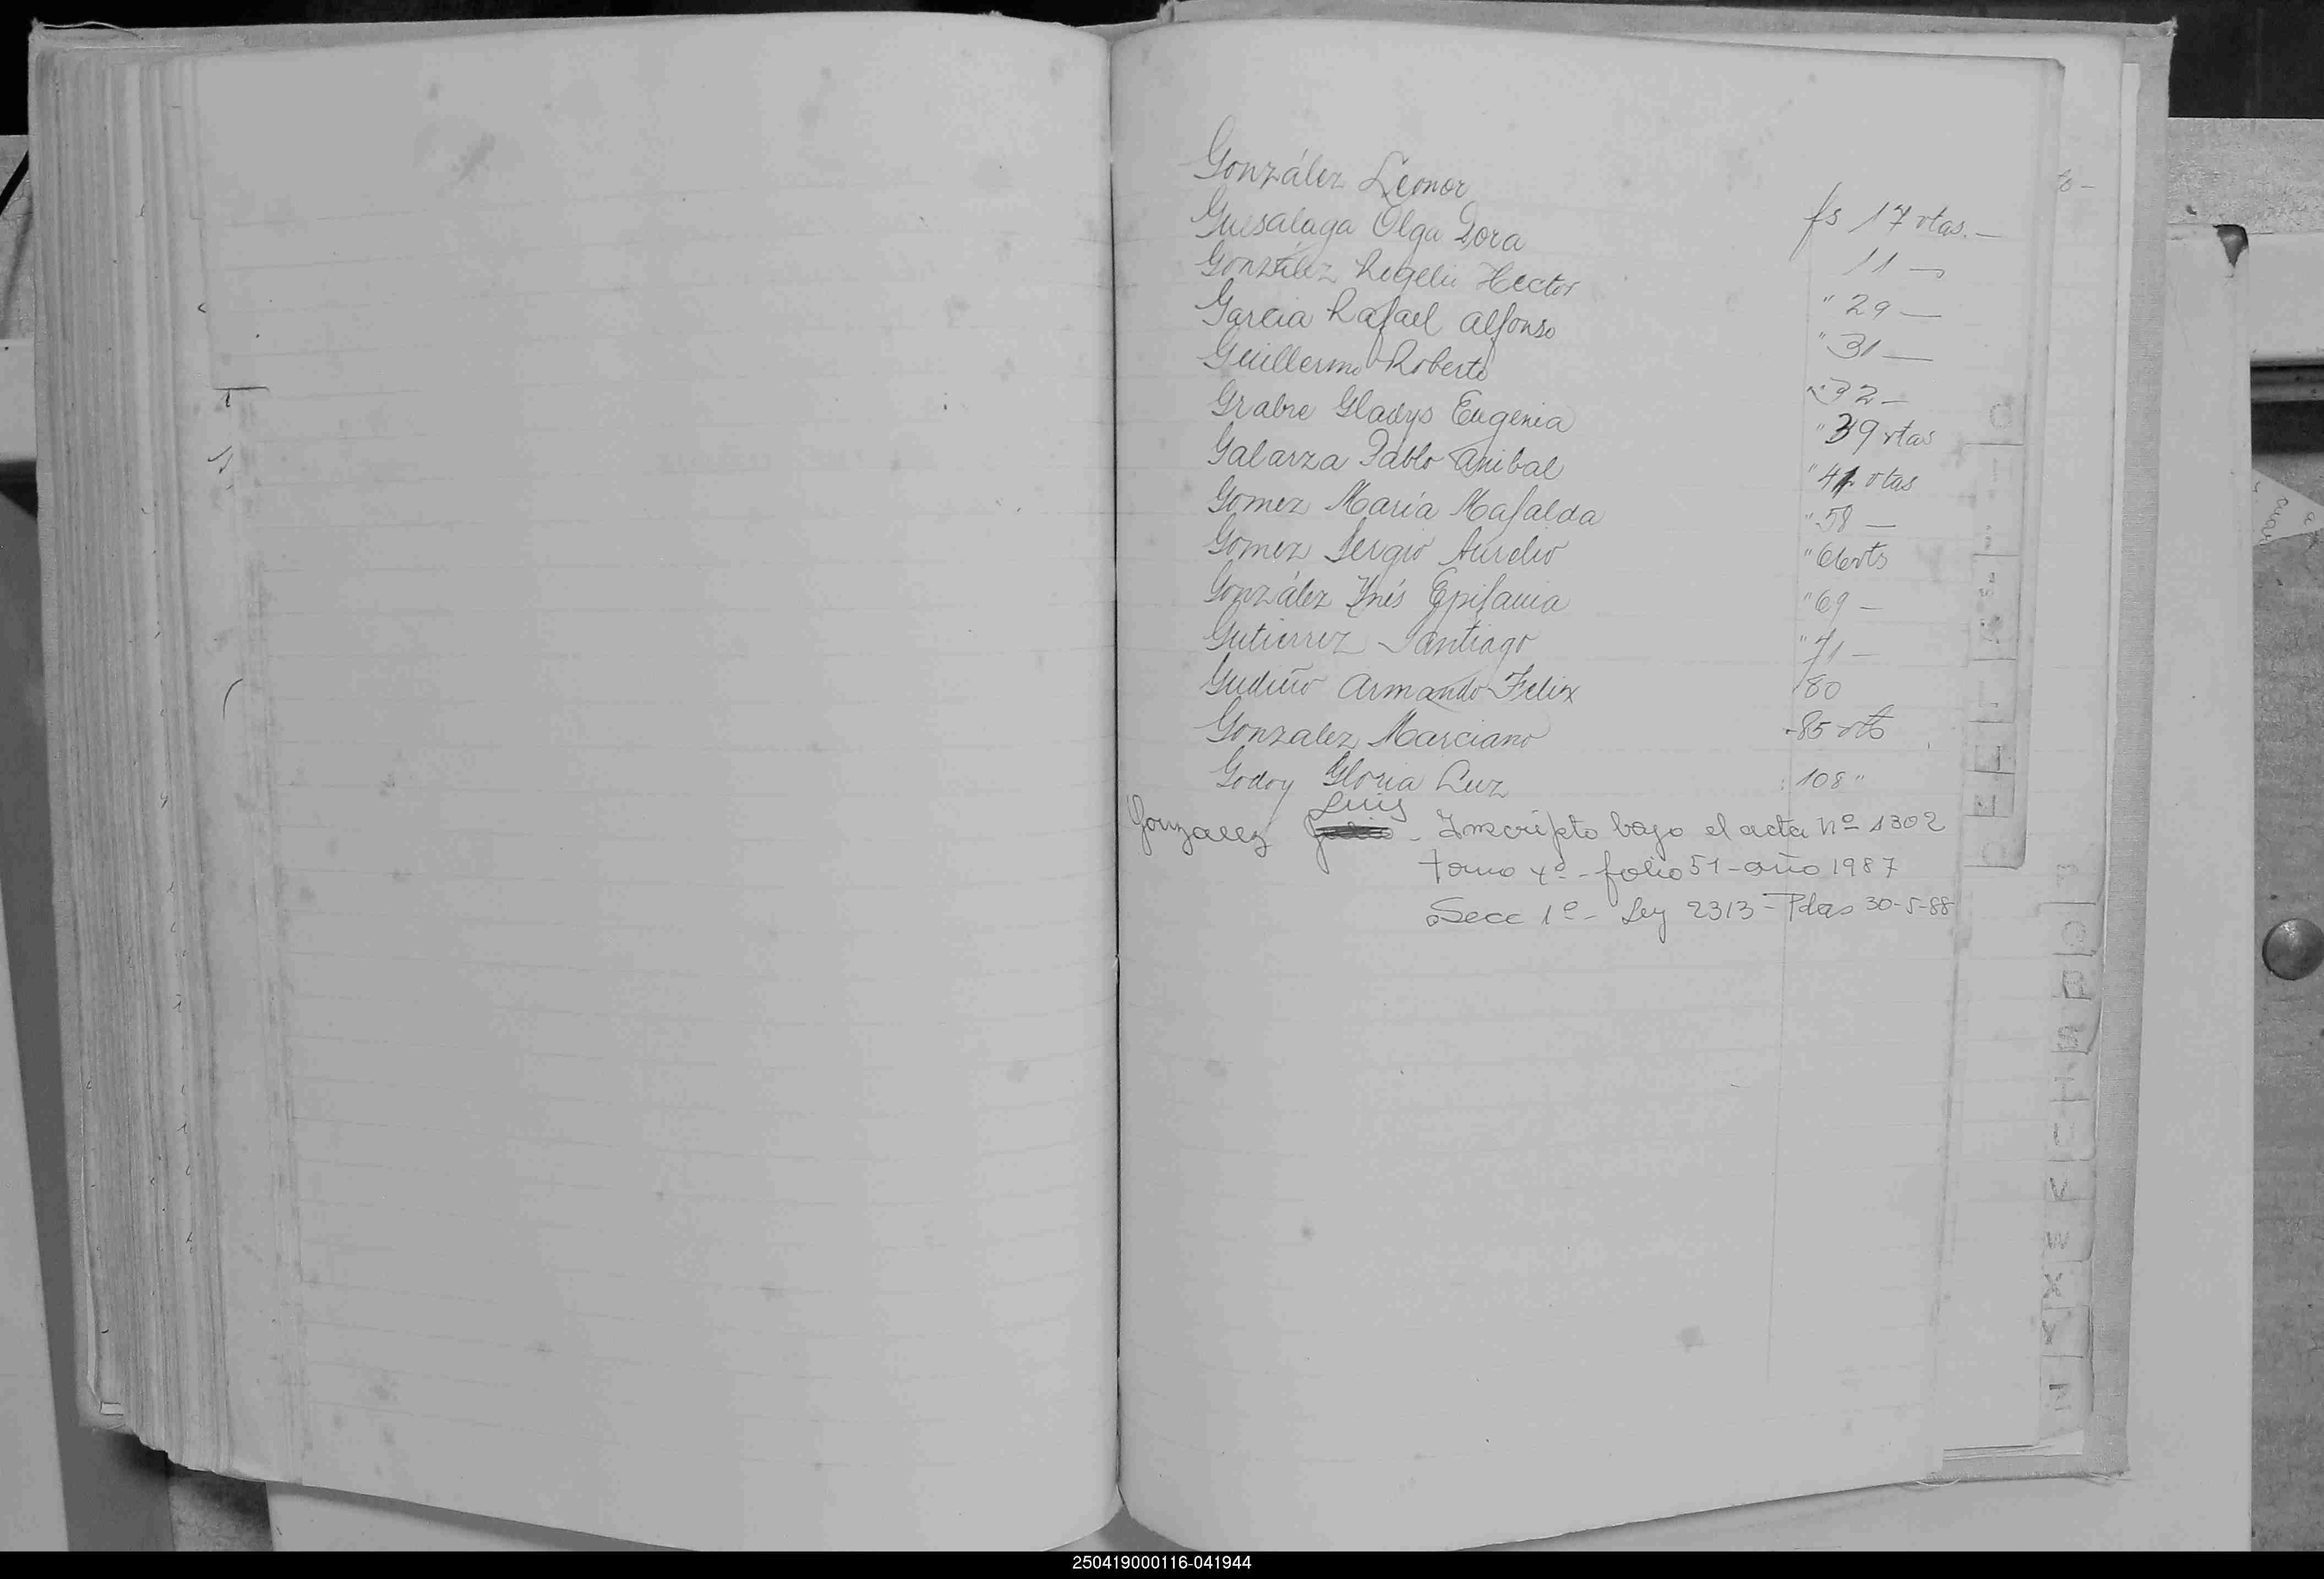 González Leonor fs 17 vtas.—
Guesalaga Olga Dora 11 —
González Rogelio Hector " 29 —
Garcia Rafael Alfonso " 31 —
Guillermo Roberto " 32 —
Grabre Gladys Eugenia " 39 vtas
Galarza Pablo Anibal " 41 vtas
Gomez María Mafalda " 58 —
Gomez Sergio Aurelio " 66 vts
González Ynés Epifania " 69 —
Gutierrez Santiago " 71 —
Gudiño Armando Felix 80
Gonzalez Marciano - 85 vts
Godoy Gloria Luz 108 "
Luis
Gonzalez - Inscripto bajo el acta nº 1302
tomo 4º - folio 51 - año 1987
Secc 1º - Ley 2313 - Pdas 30-5-88
250419000116-041944